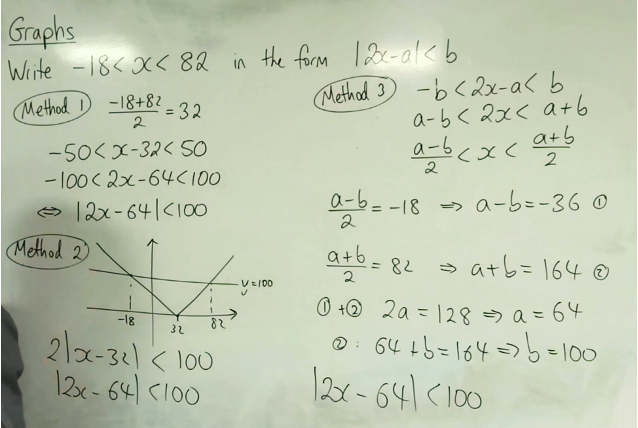 Graphs
Write -18 < x < 82 in the form |2x-a| < b
Method 1 (-18+82)/2 = 32
-50 < x-32 < 50
-100 < 2x-64 < 100
⇔ |2x-64| < 100
Method 2
y=100
-18 32 82
2|x-32| < 100
|2x-64| < 100
Method 3 -b < 2x-a < b
a-b < 2x < a+b
(a-b)/2 < x < (a+b)/2
(a-b)/2 = -18 ⇒ a-b = -36 ①
(a+b)/2 = 82 ⇒ a+b = 164 ②
① + ② 2a = 128 ⇒ a = 64
②: 64 + b = 164 ⇒ b = 100
|2x - 64| < 100